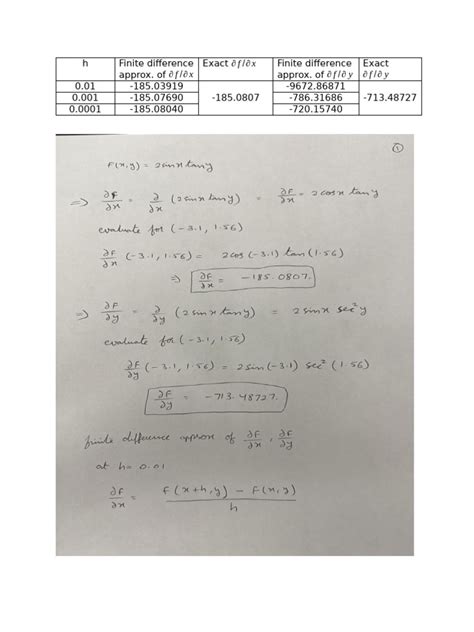 h Finite difference approx. of ∂f/∂x Exact ∂f/∂x Finite difference approx. of ∂f/∂y Exact ∂f/∂y
0.01 -185.03919 -185.0807 -9672.86871 -713.48727
0.001 -185.07690 -786.31686
0.0001 -185.08040 -720.15740
①
F(x,y) = 2sinx tany
⇒ ∂F/∂x = ∂/∂x (2sinx tany) = ∂F/∂x = 2cosx tany
evaluate for (-3.1, 1.56)
∂F/∂x (-3.1, 1.56) = 2cos(-3.1) tan(1.56)
⇒ ∂F/∂x = -185.0807.
⇒ ∂F/∂y = ∂/∂y (2sinx tany) = 2sinx sec²y
evaluate for (-3.1, 1.56)
∂F/∂y (-3.1, 1.56) = 2sin(-3.1) sec²(1.56)
∂F/∂y = -713.48727.
finite difference approx of ∂F/∂x, ∂F/∂y
at h= 0.01
∂F/∂x = F(x+h,y) - F(x,y) / h